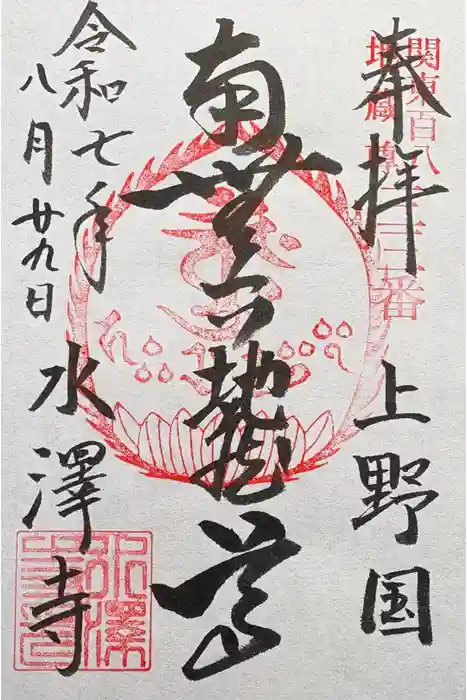 奉拝
関東百八
地蔵尊
番
上野国
南無六地蔵尊
令和七年
八月廿九日
水澤寺
水澤